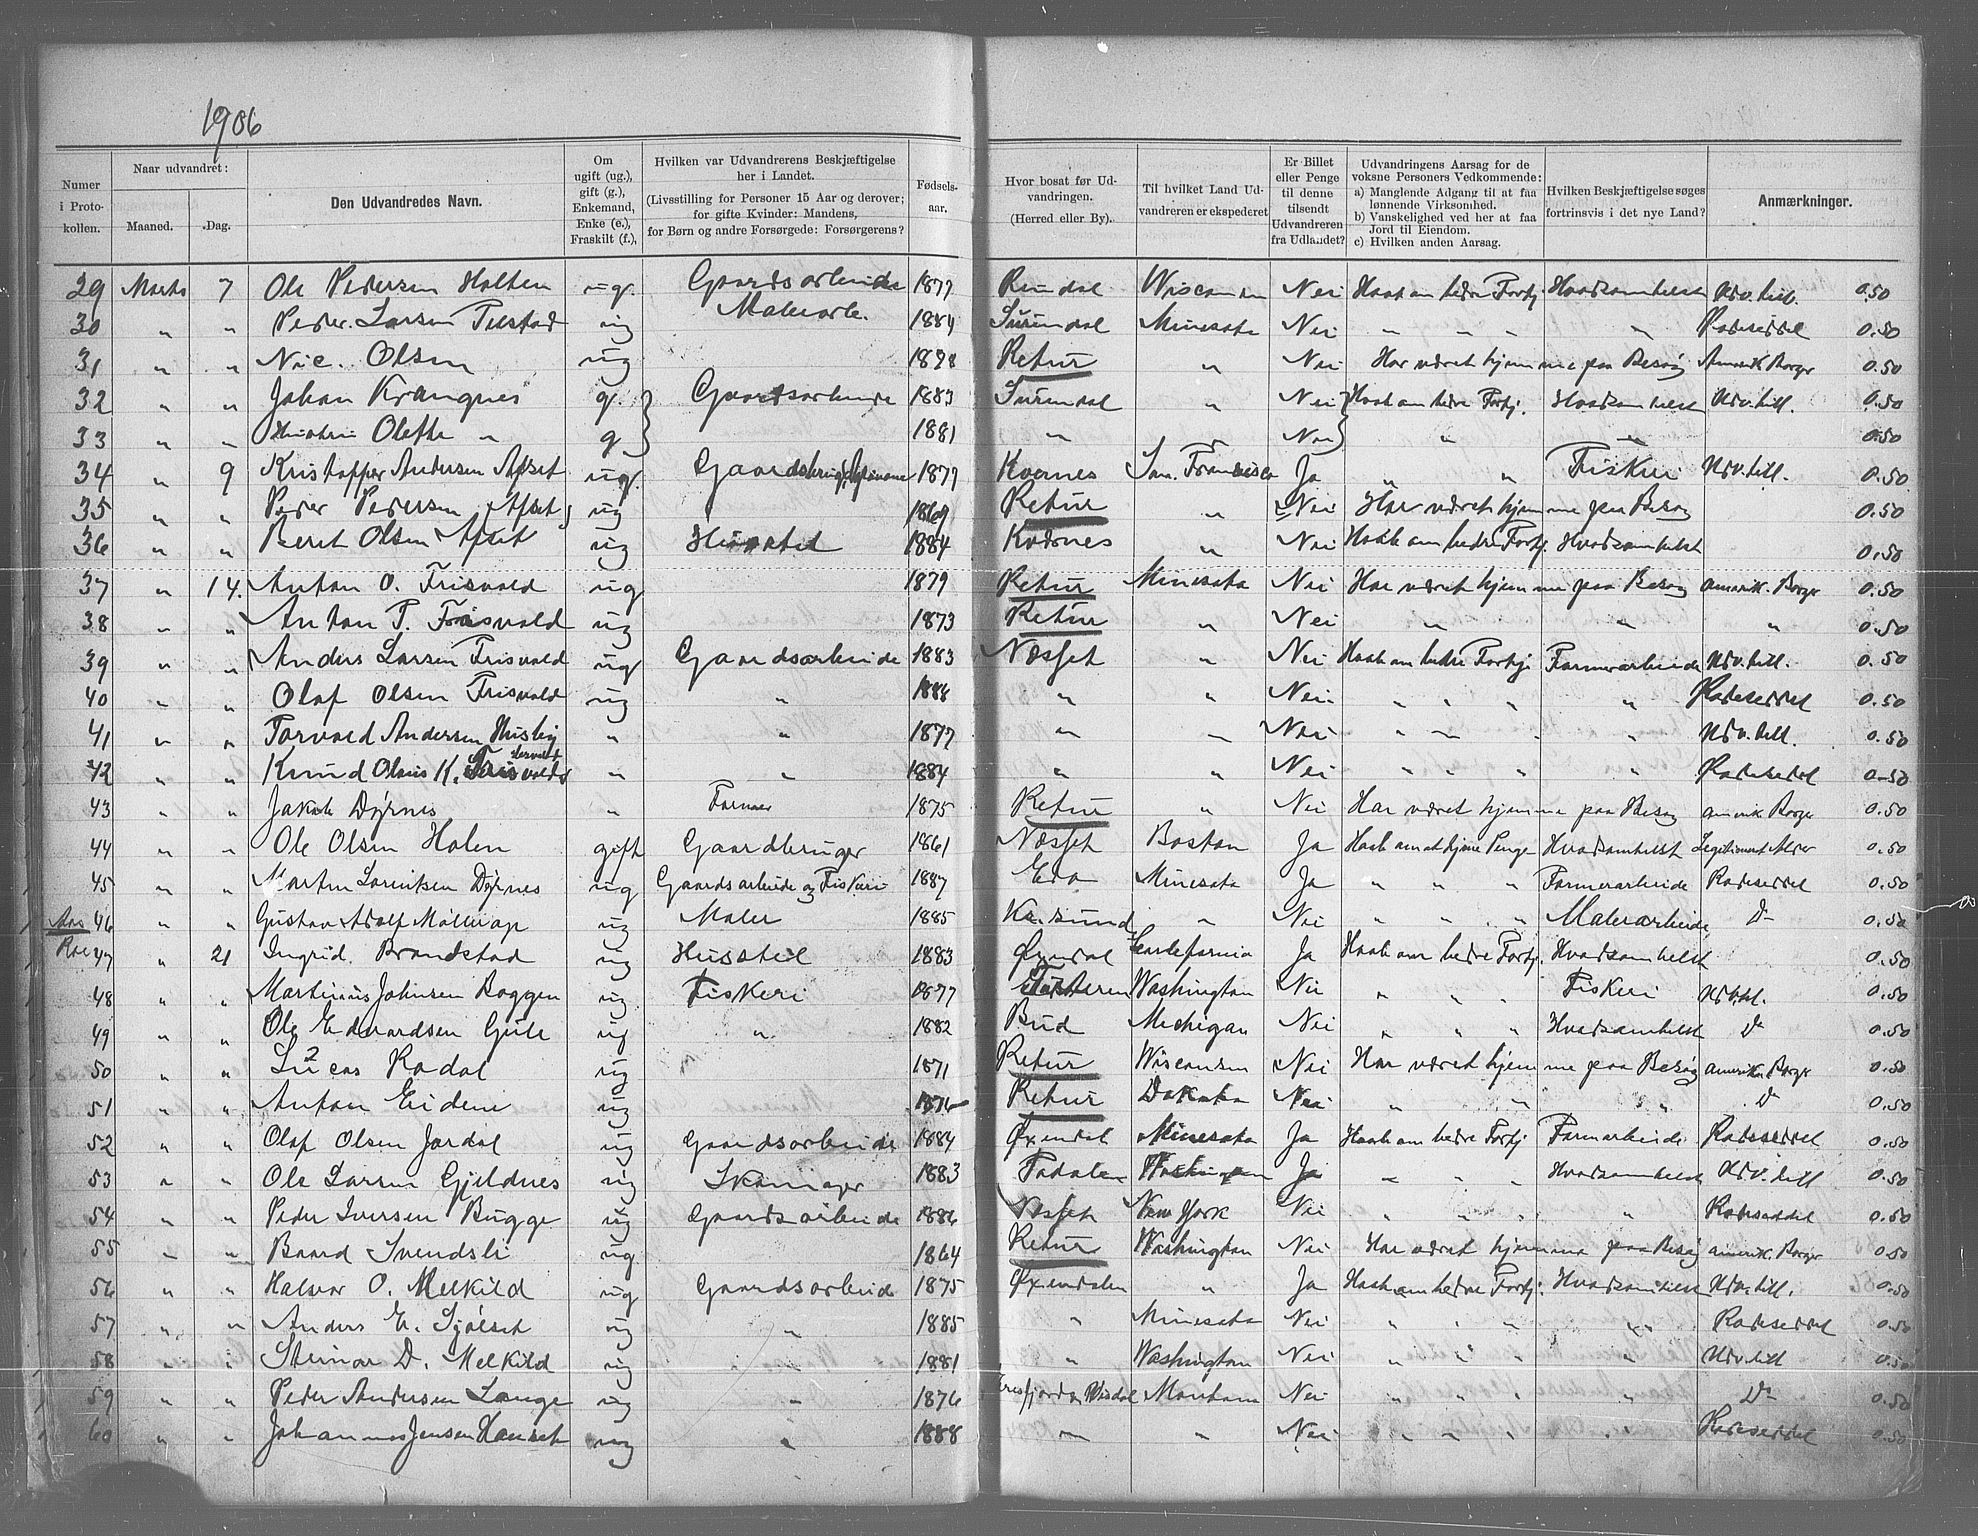 1906
Numer i Protokollen. Naar udvandret: Maaned. Dag. Den Udvandredes Navn. Om ugift (ug.), gift (g.), Enkemand, Enke (e.), Fraskilt (f.), Hvilken var Udvandrerens Beskjæftigelse her i Landet. (Livsstilling for Personer 15 Aar og derover; for gifte Kvinder: Mandens, for Børn og andre Forsørgede: Forsørgerens? Fødsels-aar. Hvor bosat før Udvandringen. (Herred eller By). Til hvilket Land Udvandreren er ekspederet? Er Billet eller Penge til denne tilsendt Udvandreren fra Udlandet? Udvandringens Aarsag for de voksne Personers Vedkommende: a) Manglende Adgang til at faa lønnende Virksomhed. b) Vanskelighed ved her at faa Jord til Eiendom. c) Hvilken anden Aarsag. Hvilken Beskjæftigelse søges fortrinsvis i det nye Land? Anmærkninger.
29 Marts 7 Ole Pedersen Holten ug. Gaardsarbeide 1877 Rindal Wisconsin Nei Haab om bedre Fortj. Hvadsomhelst Udv. till. 0.50
30 " " Peder Larsen Telstad ug Malerarb. 1884 Surendal Minesota Nei " " " " Rodeseddel 0.50
31 " " Nic. Olsen ug Retur " Nei Har været hjemme paa Besøg Amerik Borger 0.50
32 " " Johan Krangnes g. Gaardsarbeide 1883 Surendal " Nei Haab om bedre Fortj. Hvadsomhelst Udv. till. 0.50
33 " " Hustru Olefte " g 1881 " " Nei " " 0.50
34 " 9 Kristoffer Andersen Afset ug. 1877 Kvernes San Francisco Ja " " Fiskeri Udv. till. 0.50
35 " " Peder Pedersen Afset ug 1869 Retur " Nei Har været hjemme paa Besøg 0.50
36 " " Beret Olsen Afset ug Husstel 1884 Kværnes " Nei Haab om bedre Fortj. Hvadsomhelst 0.50
37 " 14. Anton O. Frisvold ug 1879 Retur Minesota Nei Har været hjemme paa Besøg amerik. Borger 0.50
38 " " Anton P. Frisvold ug 1873 Retur " Nei " " " 0.50
39 " " Anders Larsen Frisvold ug Gaardsarbeide 1883 Næsset " Nei Haab om bedre Fortj Farmerarbeide Udv. till. 0.50
40 " " Olaf Olsen Frisvold ug " " " Nei " " " " Rodeseddel 0.50
41 " " Torvald Andersen Husby " " 1877 " " Nei " " " " Udv. till. 0.50
42 " " Knud Olaus K. " " 1884 " " Nei " " " " Rodeseddel 0.50
43 " " Jakob Dørnes " Farmer 1875 Retur " Nei Har været hjemme paa Besøg amerik Borger 0.50
44 " " Ole Olsen Holen gift Gaardbruger 1861 Næsset Boston Ja Haab om at tjene Penge Hvadsomhelst 0.50
45 " " Martin Lorentsen Dørnes ug Gaardsarbeide og Fiskeri 1887 Minesota Ja " " " Farmerarbeide Rodeseddel 0.50
46 " " Gustav Adolf Møllerop ug Maler 1885 Kr.sund " Nei " " " Malerarbeide Do 0.50
47 " 21 Ingrid Brandstad ug Husstel 1883 Øxendal Ja Haab om bedre Fortj. Hvadsomhelst 0.50
48 " " Martinus Johnsen Boggen ug. Fiskeri 1877 Washington Nei " " " Fiskeri Udv. till. 0.50
49 " " Ole Edvardsen Gule ug " 1882 Bud Michigan Nei " " " Hvadsomhelst Do 0.50
50 " " Lucas Rodal ug 1871 Retur Wisconsin Nei Har været hjemme paa Besøg amerik. Borger 0.50
51 " " Anton Eidem ug 1876 Retur Dakota Nei " " " Do 0.50
52 " " Olaf Olsen Jordal ug Gaardsarbeide 1884 Øxendal Minesota Ja Haab om bedre Fortj Farmarbeide Rodeseddel 0.50
53 " " Ole Larsen Gjeldnes ug Skomager 1883 Todalen Washington Ja " " " Hvadsomhelst Udv. till 0.50
54 " " Peder Iversen Bugge ug Gaardsarbeide 1886 Næsset New York Nei " " " " Rodeseddel 0.50
55 " " Baard Svendsli ug 1864 Retur Washington Nei Har været hjemme paa Besøg amerik. Borger 0.50
56 " " Halvor O. Melkild ug Gaardsarbeide 1875 Øxendalen " Ja Haab om bedre Fortj. Hvadsomhelst Udv. till. 0.50
57 " " Anders E. Sjølset ug " 1885 " Minesota Nei " " " " Rodeseddel 0.50
58 " " Steinar D. Melkild ug " 1881 " Washington Nei " " " " Udv. till 0.50
59 " " Peder Andersen Lange ug " 1876 Eresfjord og Visdal Montana Nei " " " " Do 0.50
60 " " Johannes Jensen ug " 1888 " " Nei " " " " Rodeseddel 0.50